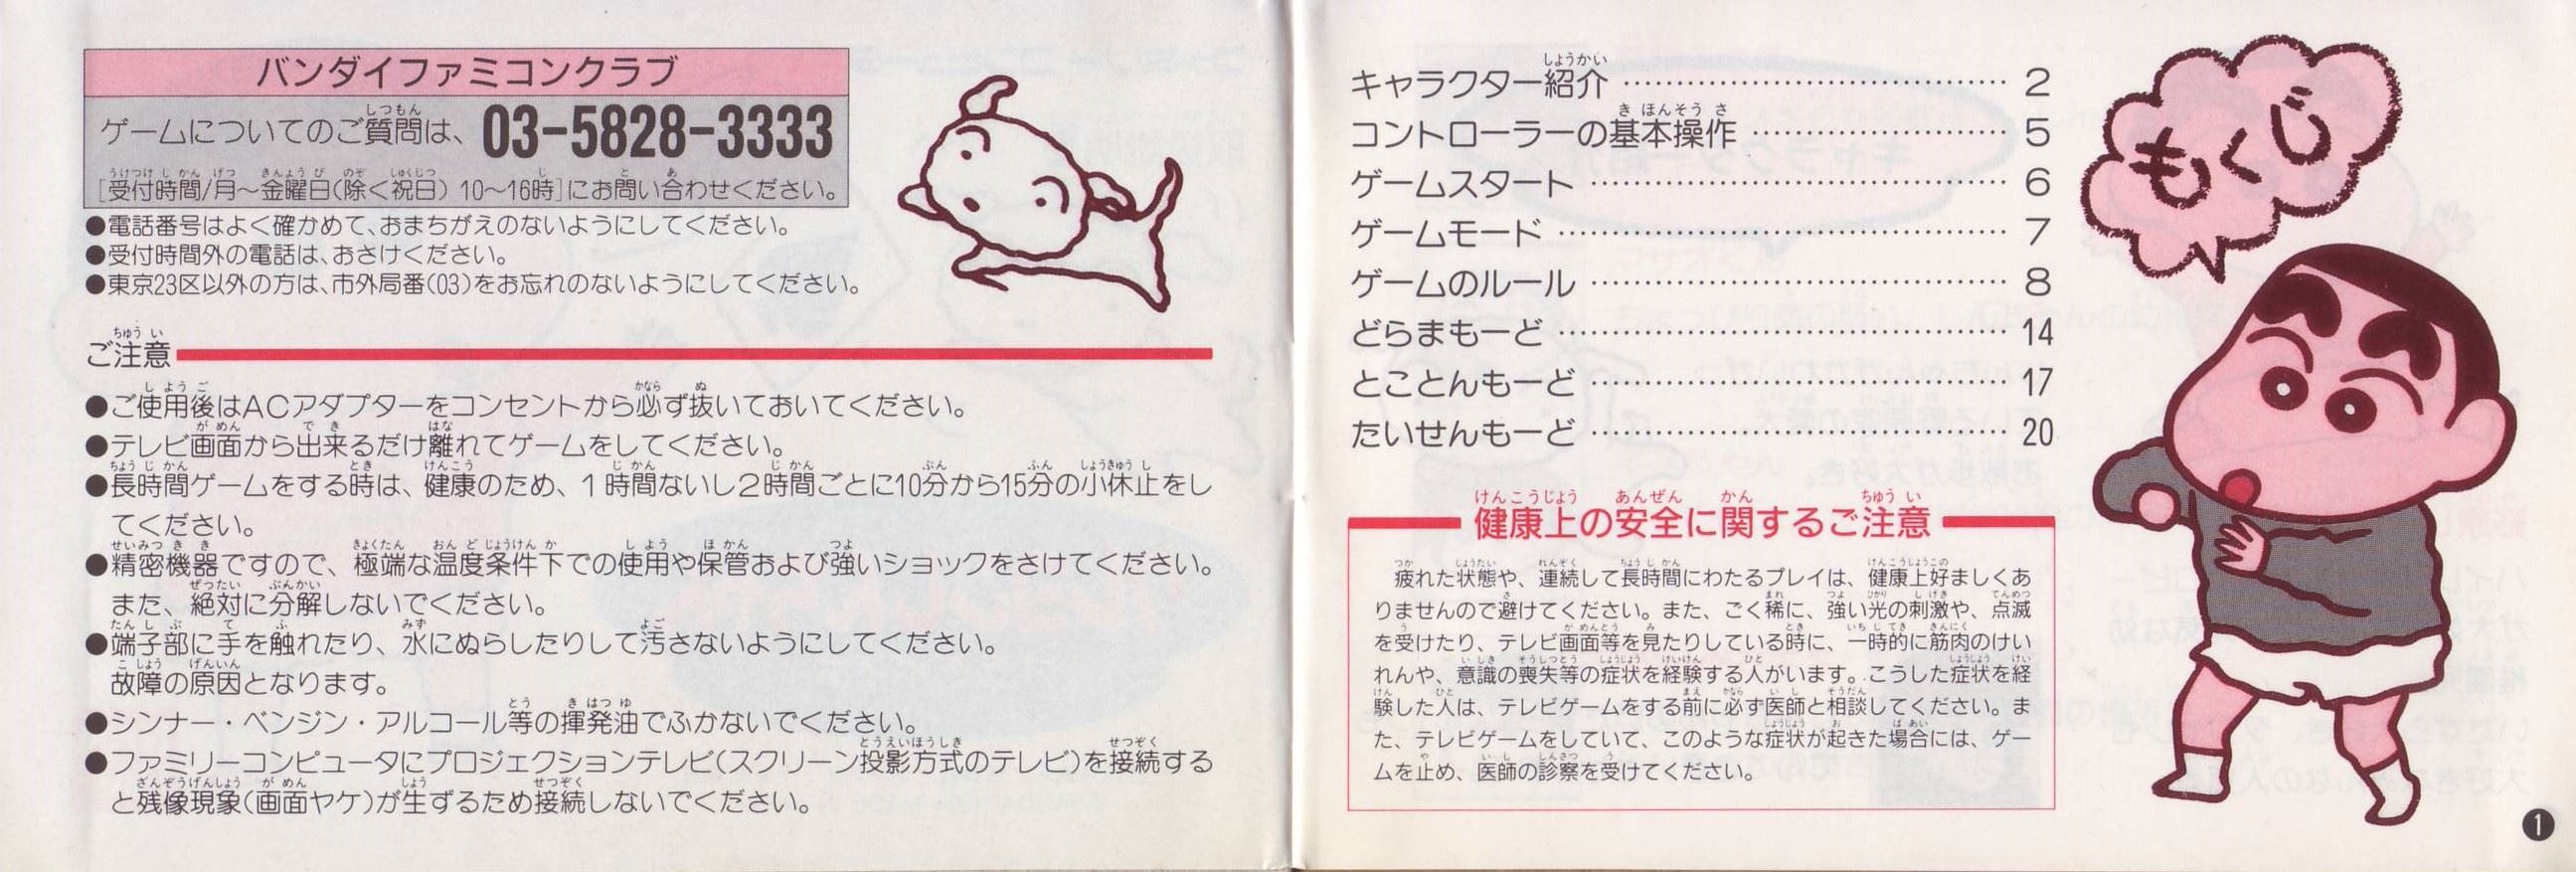 バンダイファミコンクラブ
ゲームについてのご質問は、03-5828-3333
[受付時間/月〜金曜日(除く祝日) 10〜16時]にお問い合わせください。
●電話番号はよく確かめて、おまちがえのないようにしてください。
●受付時間外の電話は、おさけください。
●東京23区以外の方は、市外局番(03)をお忘れのないようにしてください。
ご注意
●ご使用後はACアダプターをコンセントから必ず抜いておいてください。
●テレビ画面から出来るだけ離れてゲームをしてください。
●長時間ゲームをする時は、健康のため、1時間ないし2時間ごとに10分から15分の小休止をし
てください。
●精密機器ですので、極端な温度条件下での使用や保管および強いショックをさけてください。
また、絶対に分解しないでください。
●端子部に手を触れたり、水にぬらしたりして汚さないようにしてください。
故障の原因となります。
●シンナー・ベンジン・アルコール等の揮発油でふかないでください。
●ファミリーコンピュータにプロジェクションテレビ(スクリーン投影方式のテレビ)を接続する
と残像現象(画面ヤケ)が生ずるため接続しないでください。
もくじ
キャラクター紹介 ……………… 2
コントローラーの基本操作 ……………… 5
ゲームスタート ……………… 6
ゲームモード ……………… 7
ゲームのルール ……………… 8
どらまもーど ……………… 14
とことんもーど ……………… 17
たいせんもーど ……………… 20
健康上の安全に関するご注意
疲れた状態や、連続して長時間にわたるプレイは、健康上好ましくあ
りませんので避けてください。また、ごく稀に、強い光の刺激や、点滅
を受けたり、テレビ画面等を見たりしている時に、一時的に筋肉のけい
れんや、意識の喪失等の症状を経験する人がいます。こうした症状を経
験した人は、テレビゲームをする前に必ず医師と相談してください。ま
た、テレビゲームをしていて、このような症状が起きた場合には、ゲー
ムを止め、医師の診察を受けてください。
1